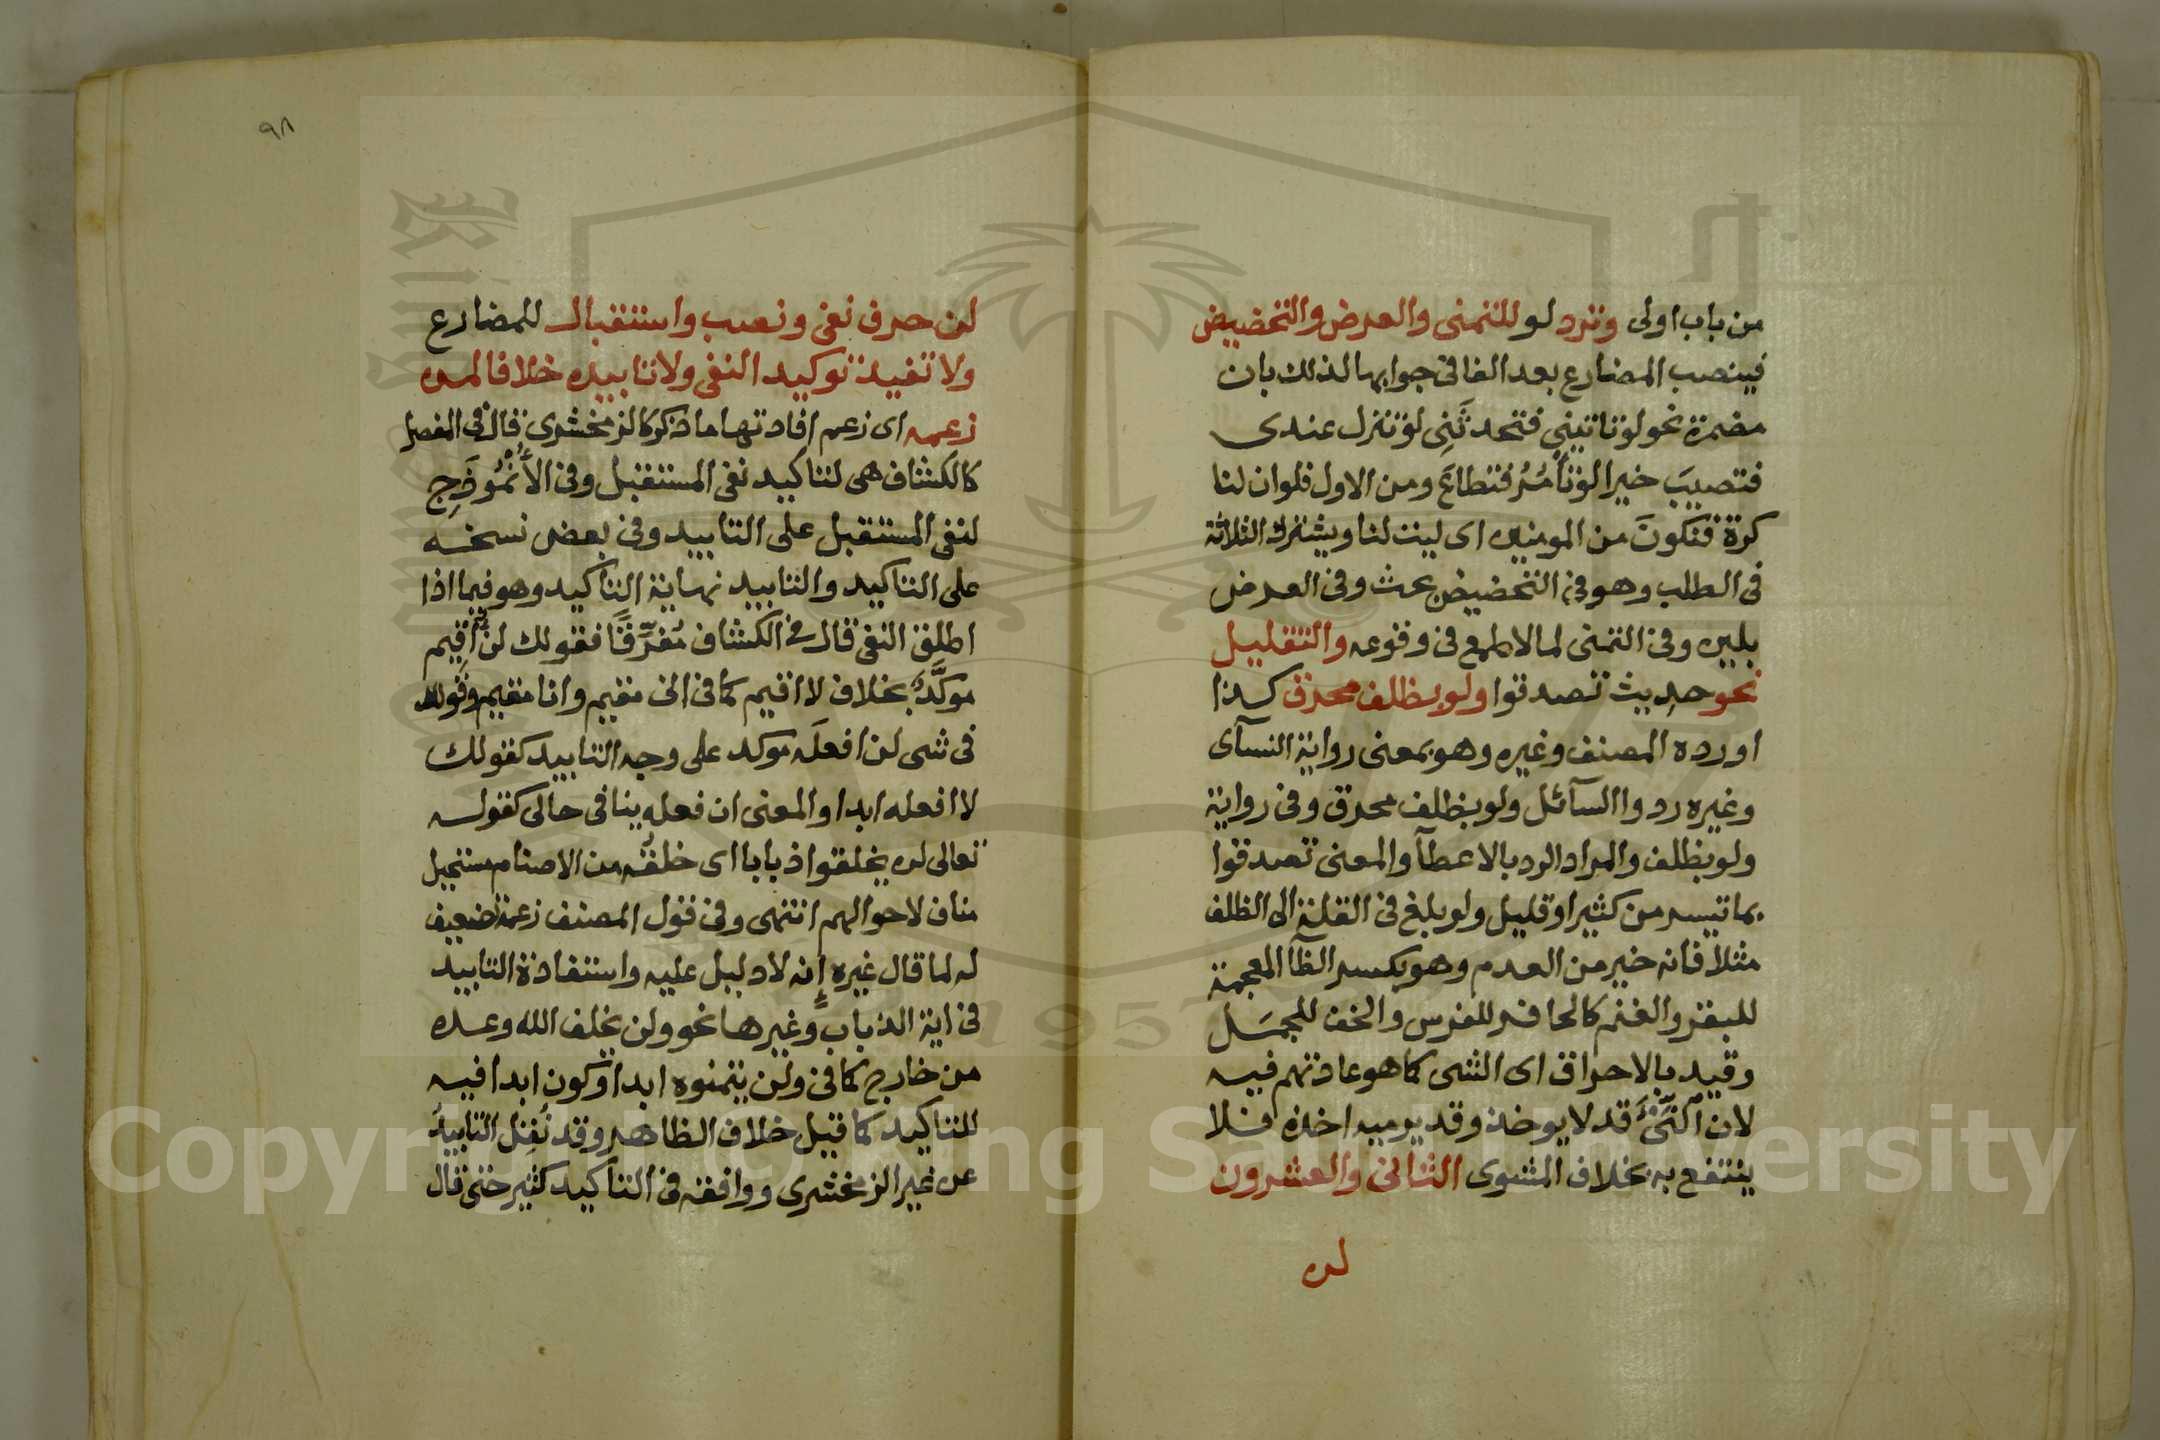 من باب اولى وترد لو للتمنى والعرض والتحضيض
فينصب المضارع بعد الفا فى جوابها لذلك بان
مضمرة نحو لو تاتينى فتحدثَنِى لو تنزل عندى
فتصيبَ خيرا لو تأمُرُ فتطاعَ ومن الاول فلوان لنا
كرة فنكونَ من المومنين اى ليت لنا ويشترك الثلاثة
فى الطلب وهو فى التحضيض بحث وفى العرض
بلين وفى التمنى لما لا طمع فى وقوعه والتقليل
نحو حديث تصدقوا ولو بظلف محرق كذا
اورده المصنف وغيره وهو بمعنى رواية النسآى
وغيره ردوا السآئل ولو بظلف محرق وفى رواية
ولو بظلف والمراد الرد بالاعطآ والمعنى تصدقوا
بما تيسر من كثير او قليل ولو بلغ فى القلة الى الظلف
مثلا فانه خير من العدم وهو بكسر الظآ المعجمة
للبقر والغنم كالحافر للفرس والخف للجمَل
وقيد بالاحراق اى الشى كما هو عادتهم فيه
لان النَّىْ قد لا يوخذ وقد يرميه اخذه فلا
ينتفع به بخلاف المشوى الثانى والعشرون
لن
٩٨
لن حرف نفى ونصب واستقبال للمضارع
ولا تفيد توكيد النفى ولا تابيده خلافا لمن
زعمه اى زعم افادتها ما ذكر كالزمخشرى قال فى المفصل
كالكشاف هى لتاكيد نفى المستقبل وفى الأُنْمُوذَجِ
لنفى المستقبل على التابيد وفى بعض نسخه
على التاكيد والتابيد نهاية التاكيد وهو فيما اذا
اطلق النفى قال فى الكشاف مُفَرِّقًا فقولك لن اقيم
موكَّد بخلاف لا اقيم كما فى انى مقيم وانا مقيم وقولك
فى شى لن افعلَه موكد على وجه التابيد كقولك
لا افعله ابدا والمعنى ان فعله ينافى حالى كقوله
تعالى لن يخلقوا ذبابا اى خلقُه من الاصنام مستحيل
مناف لاحوالهم انتهى وفى قول المصنف زعمه تضعيف
له لما قال غيره إنه لا دليل عليه واستفادة التابيد
فى اية الذباب وغيرها نحو ولن يخلف الله وعده
من خارج كما فى ولن يتمنوه ابدا وكون ابدا فيه
للتاكيد كما قيل خلاف الظاهر وقد نُقِل التابيدُ
عن غير الزمخشرى ووافقه فى التاكيد كثير حتى قال
Copyright © King Saud University
1957